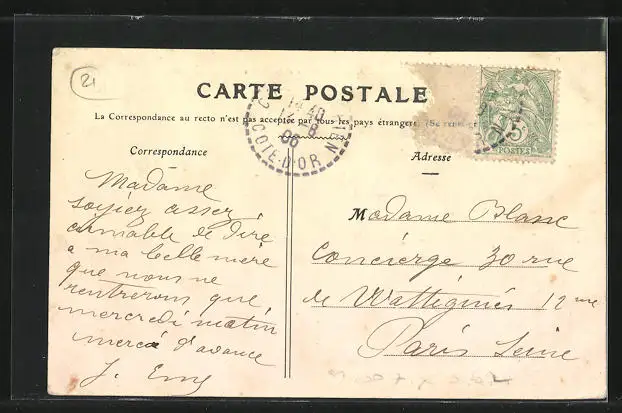 21
CARTE POSTALE
La Correspondance au recto n'est pas acceptée par tous les pays étrangers (Se renseig
Correspondance
Adresse
14 40
8
06
COTE-D'OR
5
POSTES
Madame
soyiez assez
aimable de dire
a ma belle mère
que nous ne
rentrerons que
mercredi matin
merci d'avance
J.
Madame Blanc
Concierge 30 rue
de Wattignies 12 me
Paris Seine